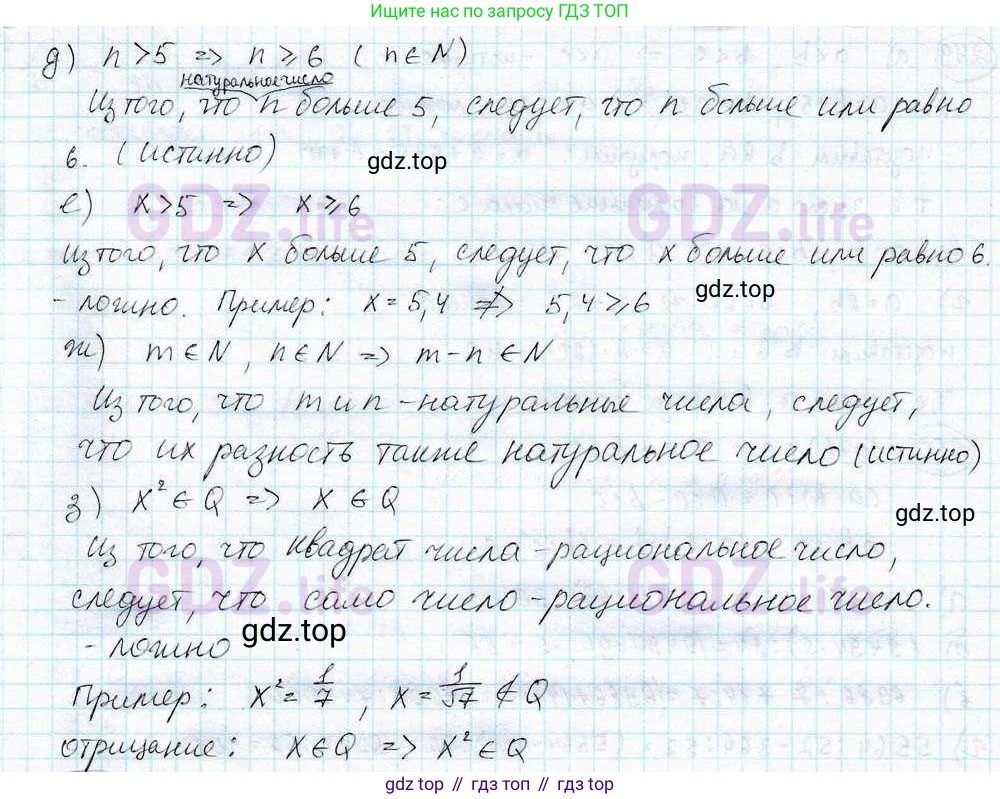 Ищите нас по запросу ГДЗ ТОП
д) n > 5 => n ⩾ 6 ( n ∈ N)
натуральное число
Из того, что n больше 5, следует, что n больше или равно
6. (истинно)
gdz.top
е) x > 5 => x ⩾ 6
GDZ.life GDZ.life
Из того, что x больше 5, следует, что x больше или равно 6.
gdz.top
- ложно. Пример: x = 5,4 ≠> 5,4 ⩾ 6
ж) m ∈ N, n ∈ N => m - n ∈ N
Из того, что m и n - натуральные числа, следует,
что их разность также натуральное число (истинно)
з) x² ∈ Q => x ∈ Q
gdz.top
Из того, что квадрат числа - рациональное число,
GDZ.life GDZ.life
следует, что само число - рациональное число.
gdz.top
- ложно
Пример: x² = 1/7, x = 1/√7 ∉ Q
отрицание: x ∈ Q => x² ∈ Q
gdz top // гдз топ // gdz.top // гдз топ // gdz top